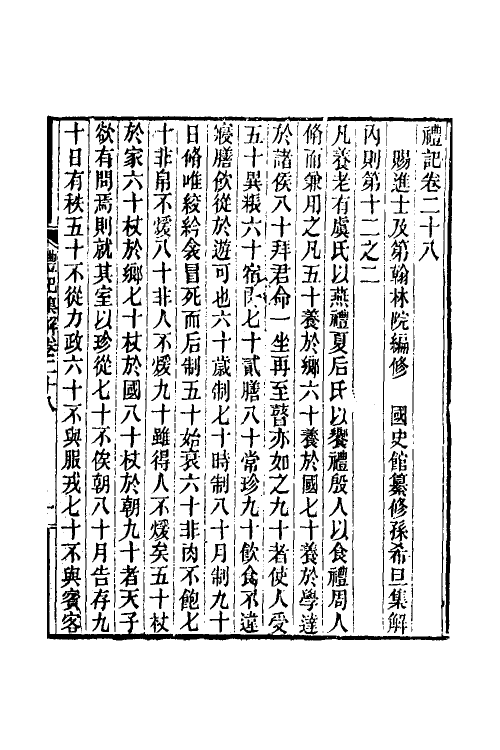 禮記卷二十八
賜進士及第翰林院編修　國史館纂修孫希旦集解
內則第十二之二
凡養老有虞氏以燕禮夏后氏以饗禮殷人以食禮周人
脩而兼用之凡五十養於鄉六十養於國七十養於學達
於諸侯八十拜君命一坐再至瞽亦如之九十者使人受
五十異粻六十宿肉七十貳膳八十常珍九十飲食不違
寢膳飲從於遊可也六十歲制七十時制八十月制九十
日脩唯絞紟衾冒死而后制五十始衰六十非肉不飽七
十非帛不煖八十非人不煖九十雖得人不煖矣五十杖
於家六十杖於鄉七十杖於國八十杖於朝九十者天子
欲有問焉則就其室以珍從七十不俟朝八十月告存九
十日有秩五十不從力政六十不與服戎七十不與賓客
禮記集解卷二十八
一